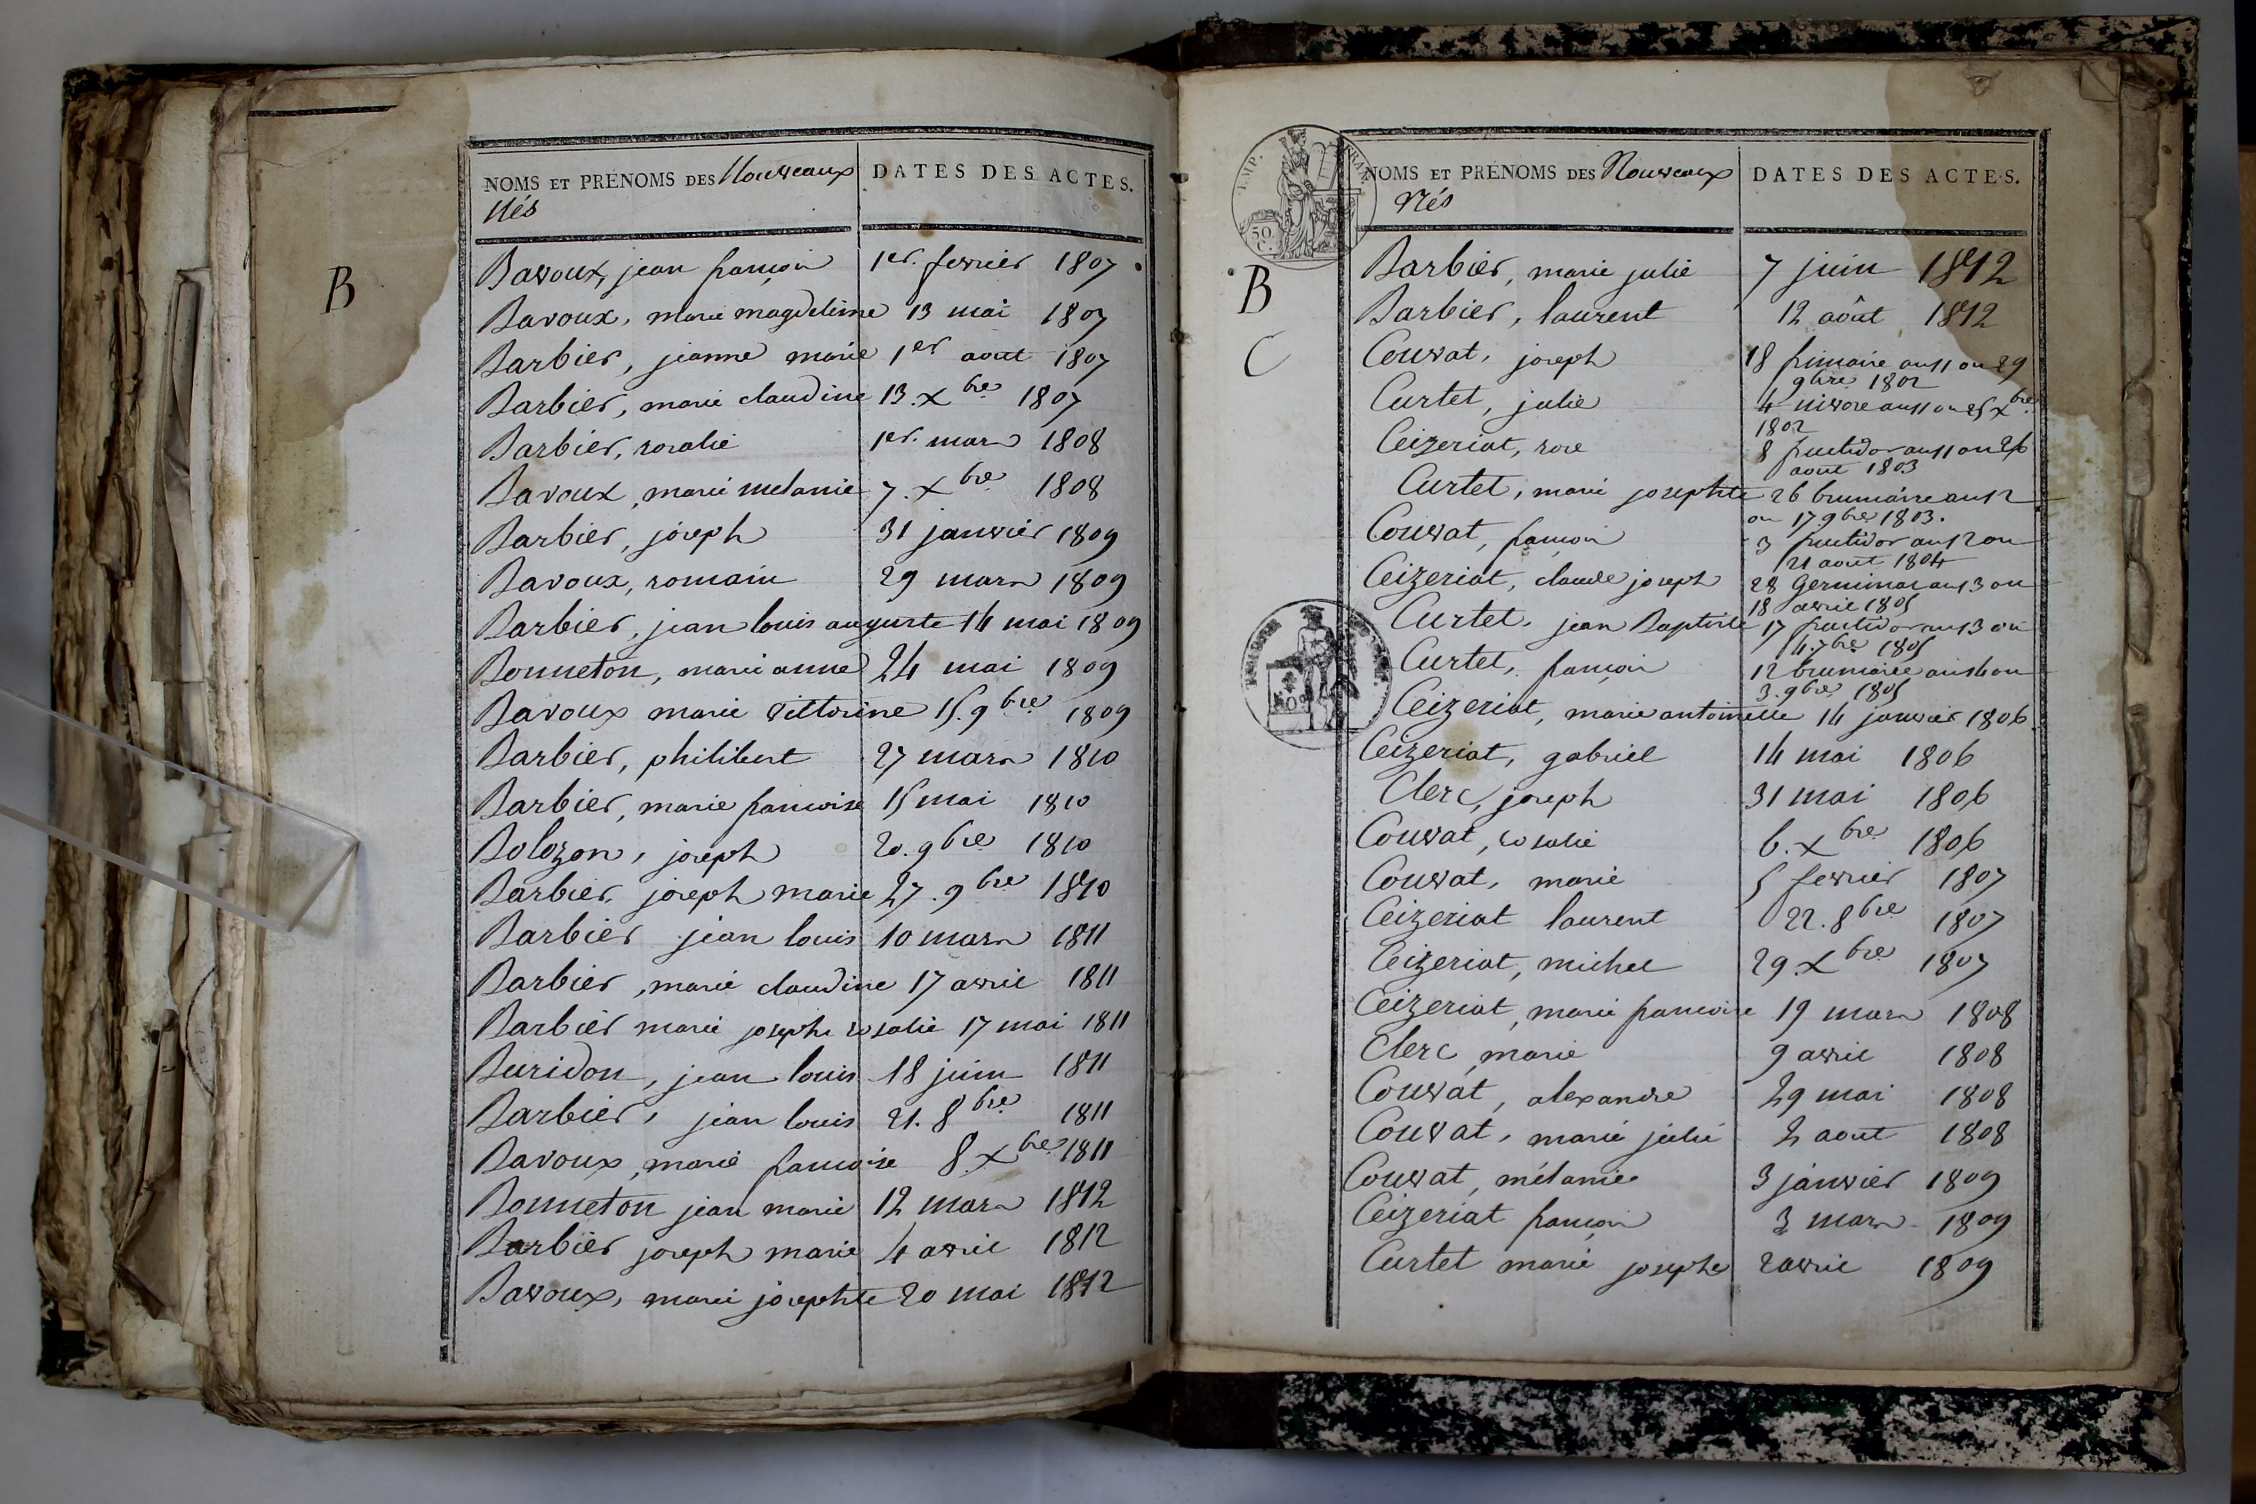 NOMS ET PRÉNOMS DES Nouveaux
Nés
DATES DES ACTES.
B
Bavoux, jean françois 1er. fevrier 1807
Bavoux, marie magdeleine 13 mai 1807
Barbier, jeanne marie 1er aout 1807
Barbier, marie claudine 13. Xbre 1807
Barbier, rosalie 1er. mars 1808
Bavoux, marie melanie 7. Xbre 1808
Barbier, joseph 31 janvier 1809
Bavoux, romain 29 mars 1809
Barbier, jean louis auguste 14 mai 1809
Bonneton, marie anne 24 mai 1809
Bavoux marie vittorine 15. 9bre 1809
Barbier, philibert 27 mars 1810
Barbier, marie francoise 15 mai 1810
Bolozon, joseph 20. 9bre 1810
Barbier, joseph marie 27. 9bre 1810
Barbier jean louis 10 mars 1811
Barbier, marie claudine 17 avril 1811
Barbier marie josephe rosalie 17 mai 1811
Buridon, jean louis 18 juin 1811
Barbier, jean louis 21. 8bre 1811
Bavoux, marie francoise 8. Xbre 1811
Bonneton jean marie 12 mars 1812
Barbier joseph marie 4 avril 1812
Bavoux, marie josephte 20 mai 1812
NOMS ET PRÉNOMS DES Nouveaux
Nés
DATES DES ACTES.
EMP. FRAN.
50 C.
B
Barbier, marie julie 7 juin 1812
Barbier, laurent 12 août 1812
C
Couvat, joseph 18 frimaire an 11 ou 29
9bre 1802
Curtet, julie 4 nivose an 11 ou 25 Xbre
1802
Ceizeriat, rose 8 fructidor an 11 ou 26
aout 1803
Curtet, marie josephte 26 brumaire an 12
ou 17 9bre 1803.
Couvat, françois 3 fructidor an 12 ou
21 aout 1804
Ceizeriat, claude joseph 28 Germinal an 13 ou
18 avril 1805
Curtet, jean Baptiste 17 fructidor an 13 ou
4. 7bre 1805
Curtet, françois 12 brumaire an 14 ou
3. 9bre 1805
Ceizeriat, marie antoinette 14 janvier 1806
Ceizeriat, gabriel 14 mai 1806
Clerc, joseph 31 mai 1806
Couvat, rosalie 6. Xbre 1806
Couvat, marie 5 fevrier 1807
Ceizeriat laurent 22. 8bre 1807
Ceizeriat, michel 29. Xbre 1807
Ceizeriat, marie francoise 19 mars 1808
Clerc, marie 9 avril 1808
Couvat, alexandre 29 mai 1808
Couvat, marie julie 2 aout 1808
Couvat, mélanie 3 janvier 1809
Ceizeriat françois 3 mars 1809
Curtet marie josephe 2 avril 1809